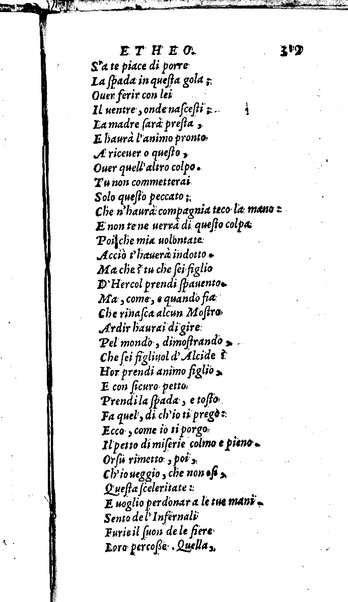 ETHEO. 319
S'a te piace di porre
La ſpada in queſta gola;
Ouer ferir con lei
Il uentre, onde naſceſti;
La madre ſarà preſta,
E haurà l'animo pronto
A riceuer o queſto,
Ouer quell'altro colpo.
Tu non commetterai
Solo queſto peccato;
Che n'haurà compagnia teco la mano.
E non te ne uerrà di queſto colpa
Poi che mia uolontate
Acciò t'hauerà indotto.
Ma che? tu che ſei figlio
D'Hercol prendi ſpauento.
Ma, come, e quando fia
Che rinaſca alcun Moſtro
Ardir haurai di gire
Pel mondo, dimoſtrando,
Che ſei figliuol d'Alcide?
Hor prendi animo figlio,
E con ſicuro petto.
Prendi la ſpada, e toſto
Fa quel, di ch'io ti prego:
Ecco, come io ti porgo
Il petto di miſerie colmo e pieno.
Orſù rimetto, poi,
Ch'io ueggio, che non oſi,
Queſta ſceleritate:
E uoglio perdonar a le tue mani
Sento de l'Infernali
Furie il ſuon de le fiere
Loro percoſſe. Quella,